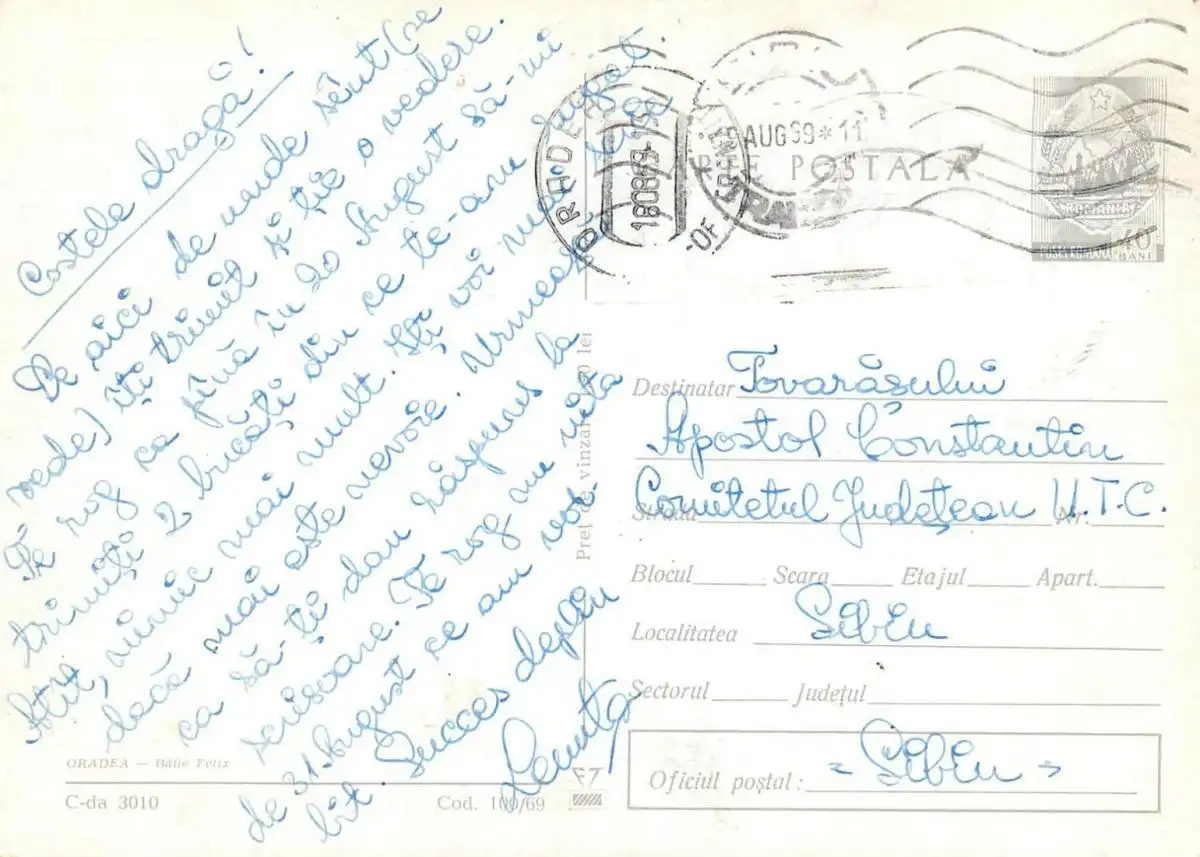 Costele dragă!
De aici de unde sînt (se
vede) îți trimit și ție o vedere.
Te rog ca pînă în 20 August să-mi
trimiți 2 bucăți din ce te-am rugat.
Atît, nimic mai mult. Îți voi mai ruga
dacă mai este nevoie. Urmează
ca să-ți dau răspuns la
scrisoare. Te rog nu uita
de 31 August ce am vor-
bit. Succes deplin
ORADEA — Băile Felix
C-da 3010
Cod. 100/69
Preț de vînzare
lei
ORADEA
180869
AUG 69 * 11
CARTE POSTALA
ROMANA
POSTA ROMANA
40 BANI
Destinatar Tovarășului
Apostol Constantin
Strada Comitetul Județean U.T.C.
Nr.
Blocul Scara Etajul Apart.
Localitatea Sibiu
Sectorul Județul
Oficiul poștal: "Sibiu"